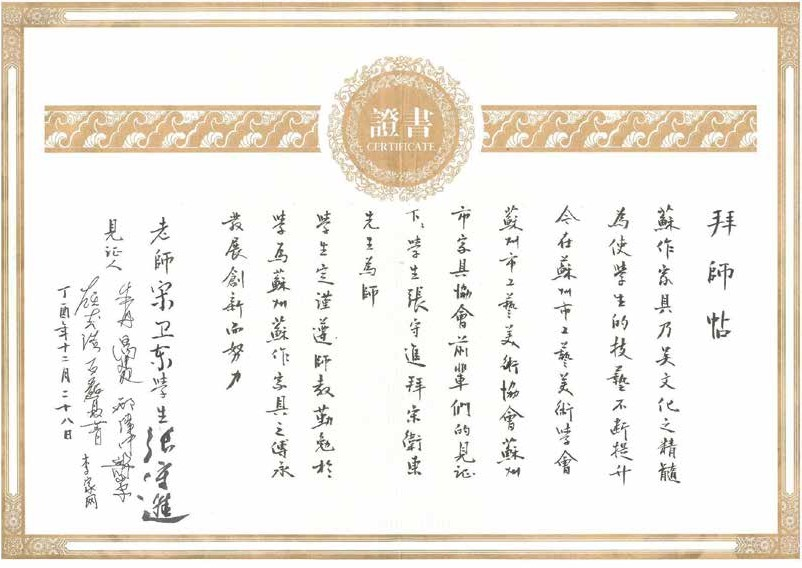 證書
CERTIFICATE
拜師帖
蘇作家具乃吴文化之精髓
為使學生的技藝不断提升
今在蘇州市工藝美術學會
蘇州市工藝美術協會蘇州
市家具協會前輩們的見証
下；學生張守進拜宋衛東
先生為師
學生定谨遵師教勤勉於
學為蘇州蘇作家具之傳承
發展創新而努力
老師宋卫东學生張守進
見证人
丁酉年十二月二十八日